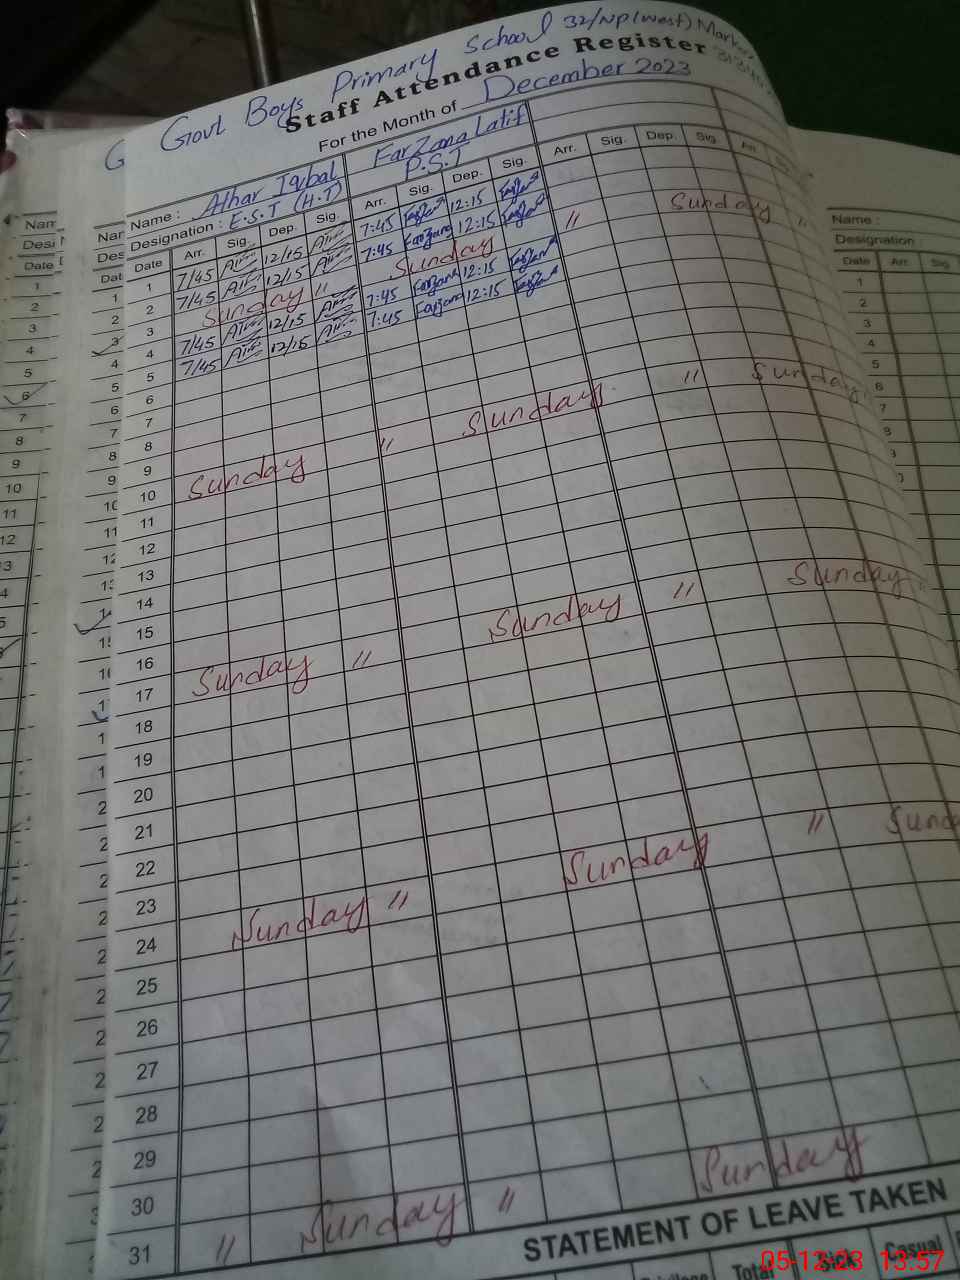 Govt Boys Primary School 32/NP(West) Marke
Staff Attendance Register
For the Month of December 2023
Name : Athar Iqbal Farzana Latif
Designation : E.S.T (H.T) P.S.T
Date Arr. Sig. Dep. Sig. Arr. Sig. Dep. Sig. Arr. Sig. Dep. Sig. Arr.
1 7/45 12/15 7:45 Farzana 12:15 Farzana
2 7/45 12/15 7:45 Farzana 12:15 Farzana
3 Sunday " Sunday " Sunday "
4 7/45 12/15 7:45 Farzana 12:15 Farzana
5 7/45 12/15 7:45 Farzana 12:15 Farzana
6
7
8
9
10 Sunday " Sunday " Sunday
11
12
13
14
15
16
17 Sunday " Sunday " Sunday
18
19
20
21
22
23
24 Sunday " Sunday "
25
26
27
28
29
30
31 " Sunday " Sunday
STATEMENT OF LEAVE TAKEN
Total Sick Casual
Name :
Designation
Date Arr. Sig
1
2
3
4
5
6
7
05-12-23 13:57